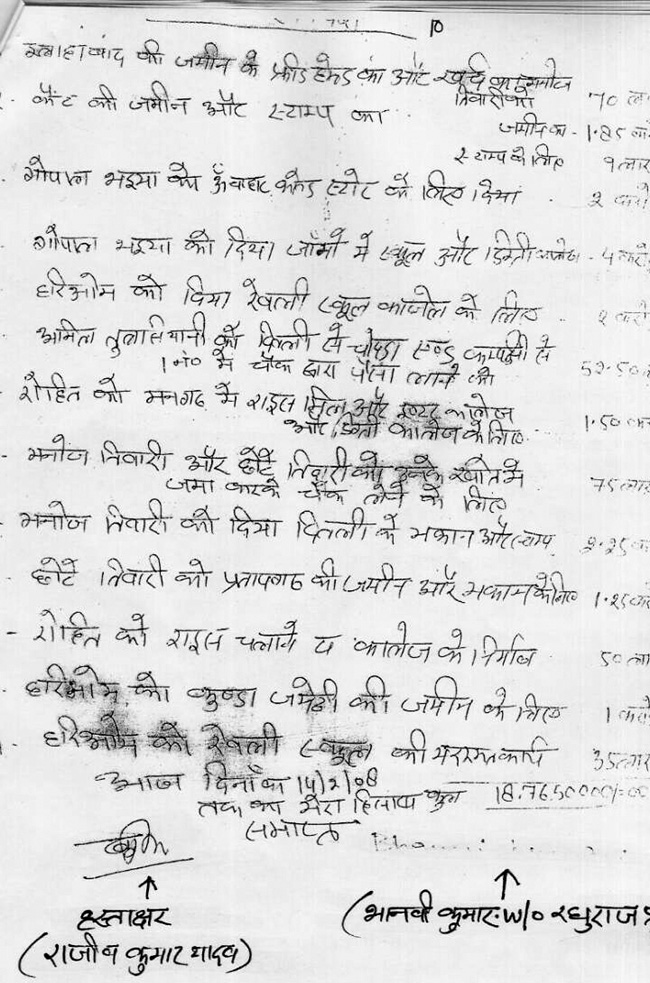 10
इलाहाबाद की जमीन के फ्रीहोल्ड का और खर्च का मनोज
तिवारी को 70 ला
कैंट की जमीन और स्टाम्प का
जमीन का - 1.85 क
स्टाम्प के लिए 9 लार
गोपाल भइया को कोल्ड स्टोर के लिए दिया 2 करो
गोपाल भइया को दिया जॉमो मे स्कूल और डिग्री कालेज - 4 करो
हरिओम को दिया रेवली स्कूल कालेज के लिए 2 करो
अमित तुलसियानी को दिल्ली से चोपड़ा एण्ड कम्पनी से
1 नं० में चेक द्वारा पैसा लाने को 52.50
रोहित को मनगढ़ मे राइस मिल और इण्टर कालेज
और डिग्री कालेज के लिए 1.50
मनोज तिवारी और छोटे तिवारी को उनके खाते में
जमा करके चेक लेने के लिए 75 लार
मनोज तिवारी को दिया दिल्ली के मकान और स्टाम्प 2.25 क
छोटे तिवारी को प्रतापगढ की जमीन और मकान के लिए 1.25 क
- रोहित को राइस चलाने व कालेज के निर्माण 50 लार
हरिओम को कुण्डा जमेठी की जमीन के लिए 1 करो
हरिओम को रेवली स्कूल की मरम्मत कार्य 35 लार
आज दिनाँक 14/2/08
तक का मेरा हिसाब कुल 18.7650000/=00
समाप्त
हस्ताक्षर
(राजीव कुमार यादव)
(भानवी कुमारी W/o रघुराज